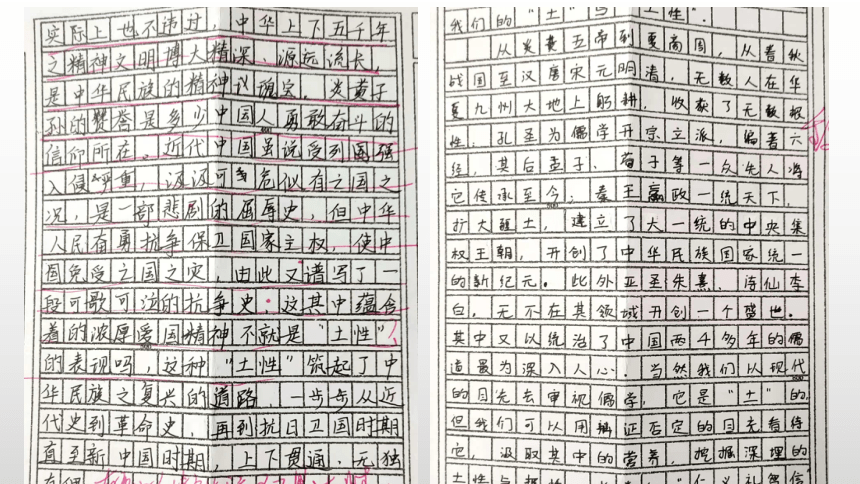 实际上也不违过，中华上下五千年
之精神文明博大精深、源远流长，
是中华民族的精神瑰宝，炎黄子
孙的赞誉是多少中国人勇敢奋斗的
信仰所在。近代中国虽说受到列强
入侵严重，汲汲可危似有亡国之
况，是一部悲剧的屈辱史，但中华
人民奋勇抗争保卫国家主权，使中
国免受亡国之灾，由此又谱写了一
段可歌可泣的抗争史：这其中蕴含
着的浓厚爱国精神不就是“土性”
的表现吗，这种“土性”筑起了中
华民族之复兴的道路，一步步从近
代史到革命史，再到抗日卫国时期
直至新中国时期，上下贯通，无独
我们的“土”与“土性”.
从炎黄五帝到夏商周，从春秋
战国至汉唐宋元明清，无数人在华
夏九州大地上躬耕，收获了无数极
性：孔圣为儒学开宗立派，编著六
经，其后孟子、荀子等一众先人将
它传承至今；秦王嬴政一统天下，
扩大疆土，建立了大一统的中央集
权王朝，开创了中华民族国家统一
的新纪元。此外亚圣朱熹、诗仙李
白，无不在其领域开创一个盛世。
其中又以统治了中国两千多年的儒
道最为深入人心。当然我们以现代
的目光去审视儒学，它是“土”的
但我们可以用辩证否定的目光看待
它，汲取其中的营养，挖掘深埋的